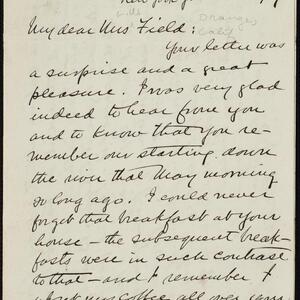 New York
My dear Mrs Field:
Your letter was
a surprise and a great
pleasure. I was very glad
indeed to hear from you
and to know that you re-
member our starting down
the river that May morning
so long ago. I could never
forget that breakfast at your
house — the subsequent break-
fasts were in such contrast
to that — and I remember I
coffee all over